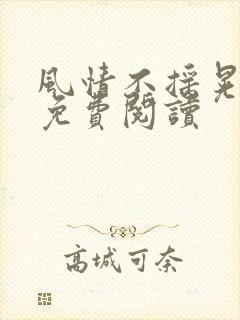 風情不搖晃
免費閱讀
高城可奈